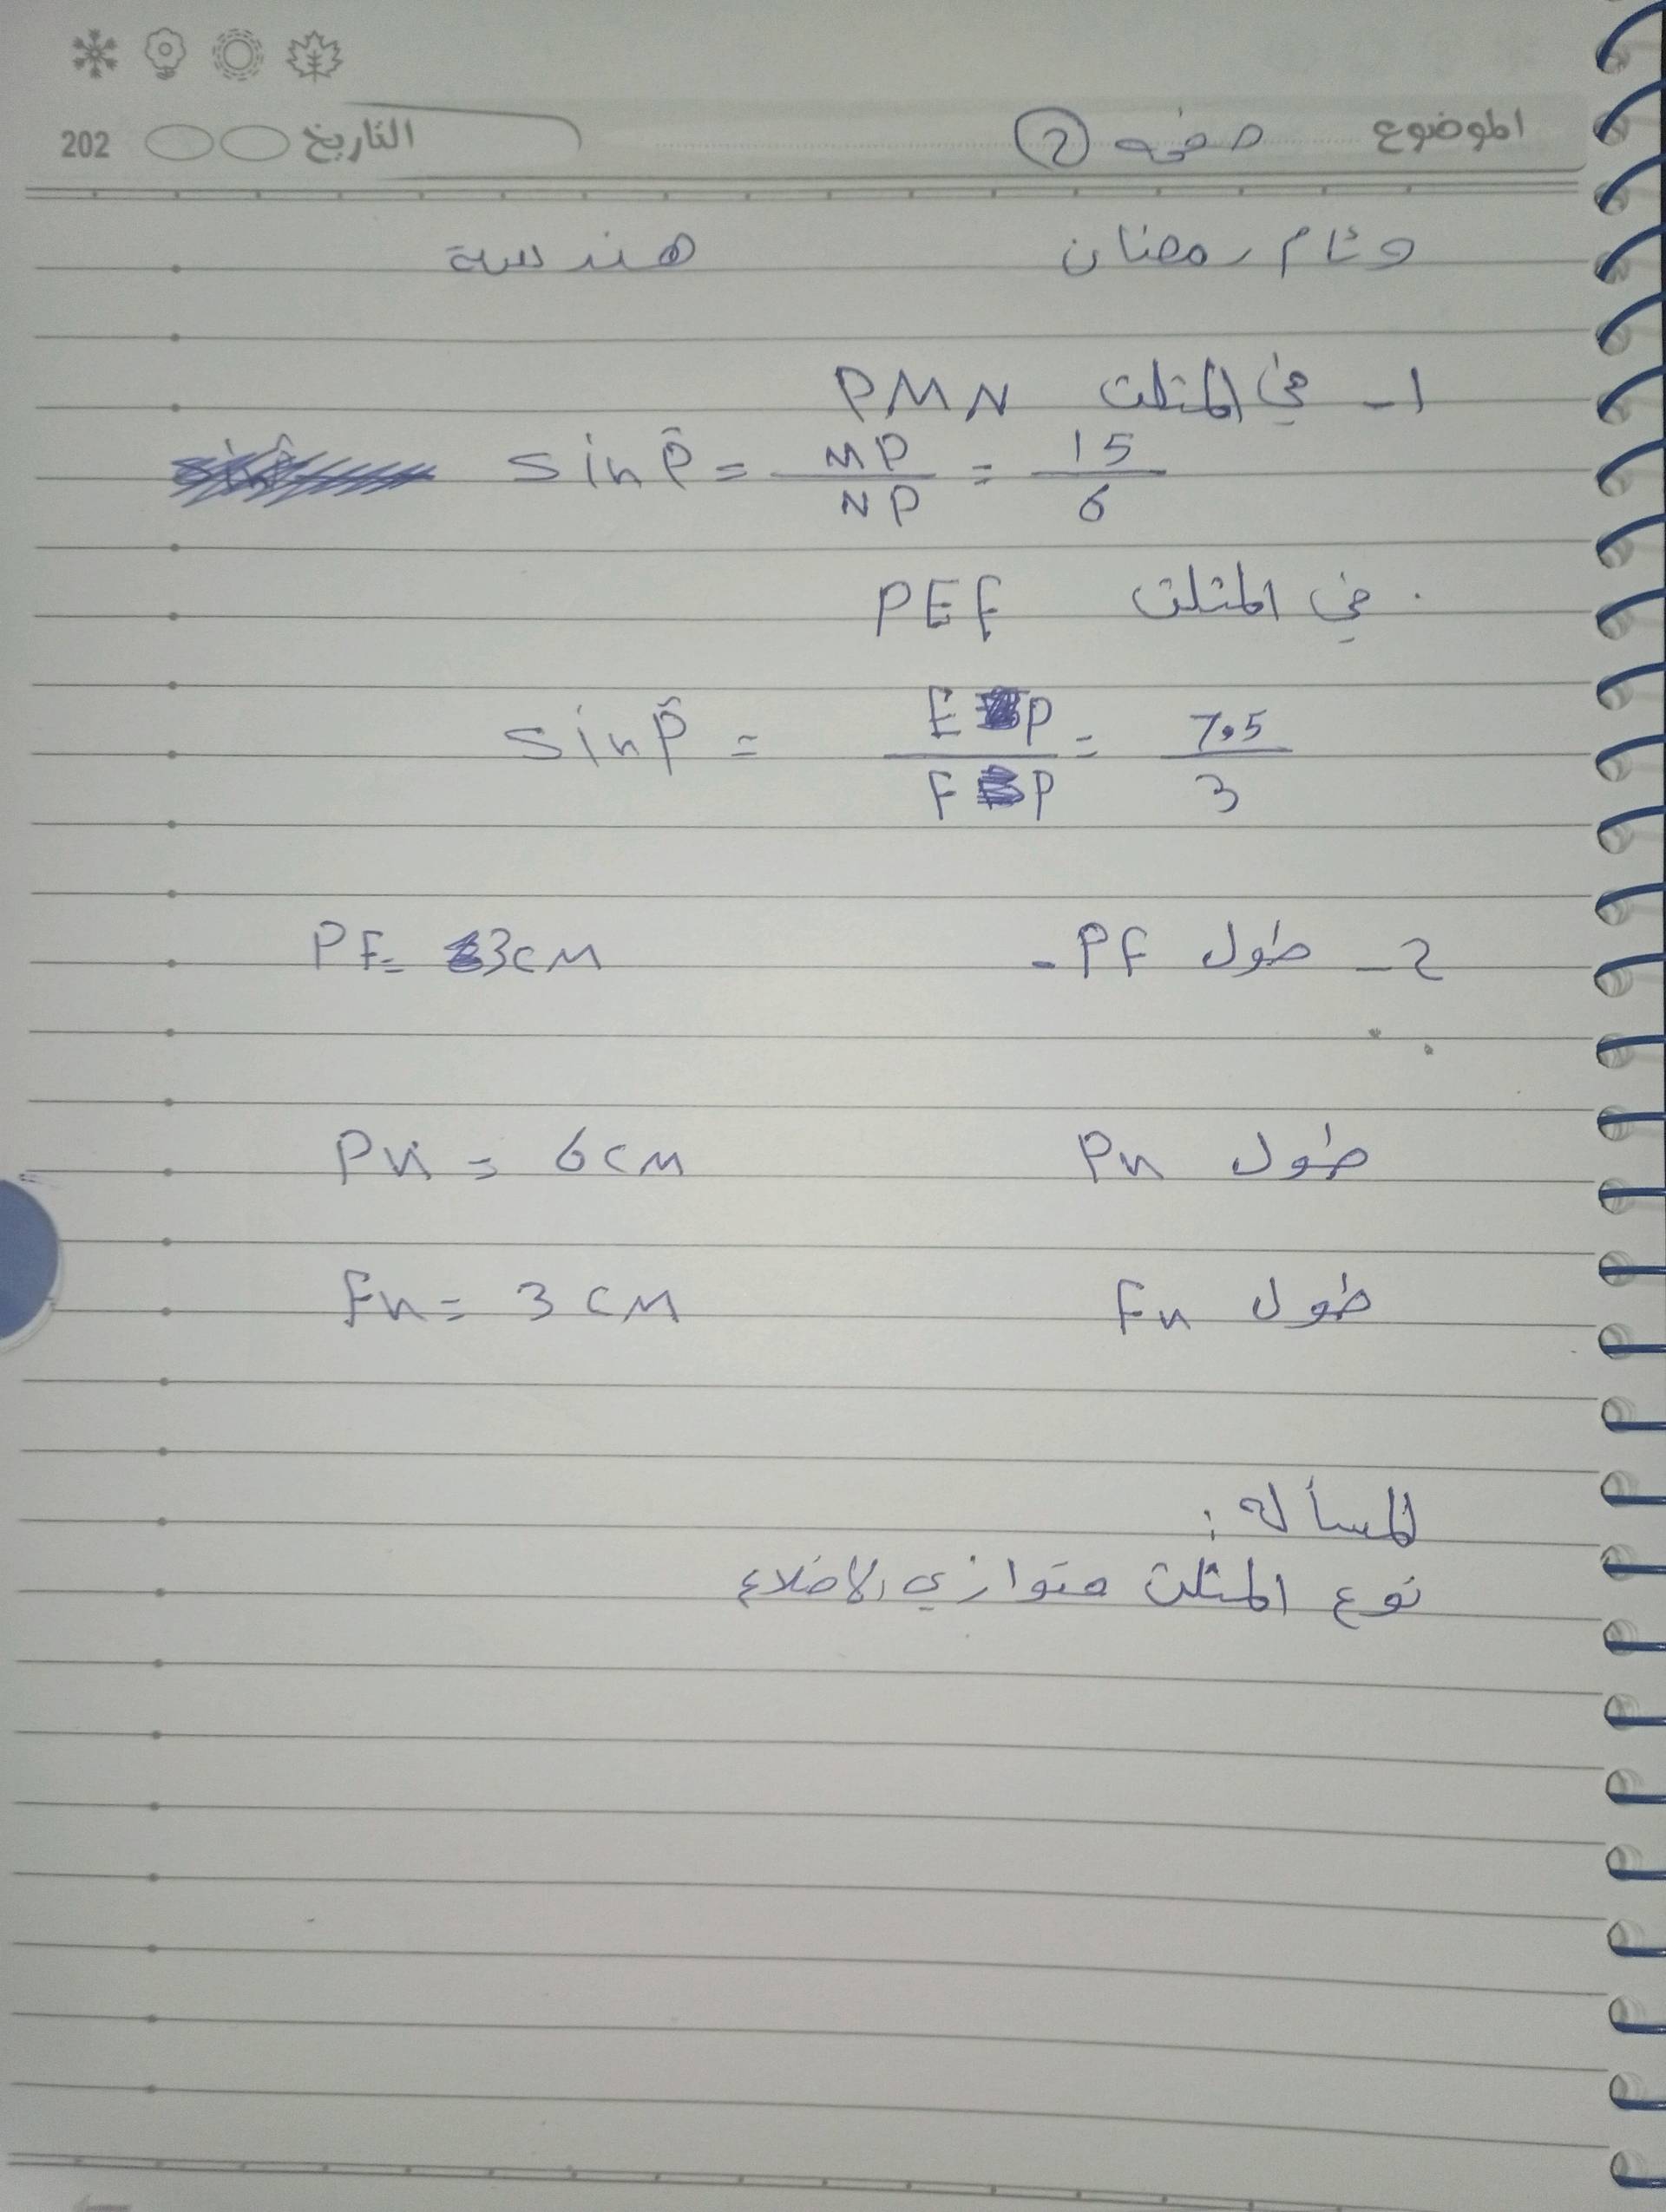 الموضوع صفحه 2 التاريخ 202
وئام رمضان هندسة
1- في المثلث PMN
sin P̂ = MP/NP = 15/6
في المثلث PEF
sin P̂ = EP/FP = 7.5/3
2- طول PF. PF = 3cM
طول Pn Pn = 6cM
طول Fn Fn = 3cM
المسألة:
نوع المثلث متوازي الاضلاع